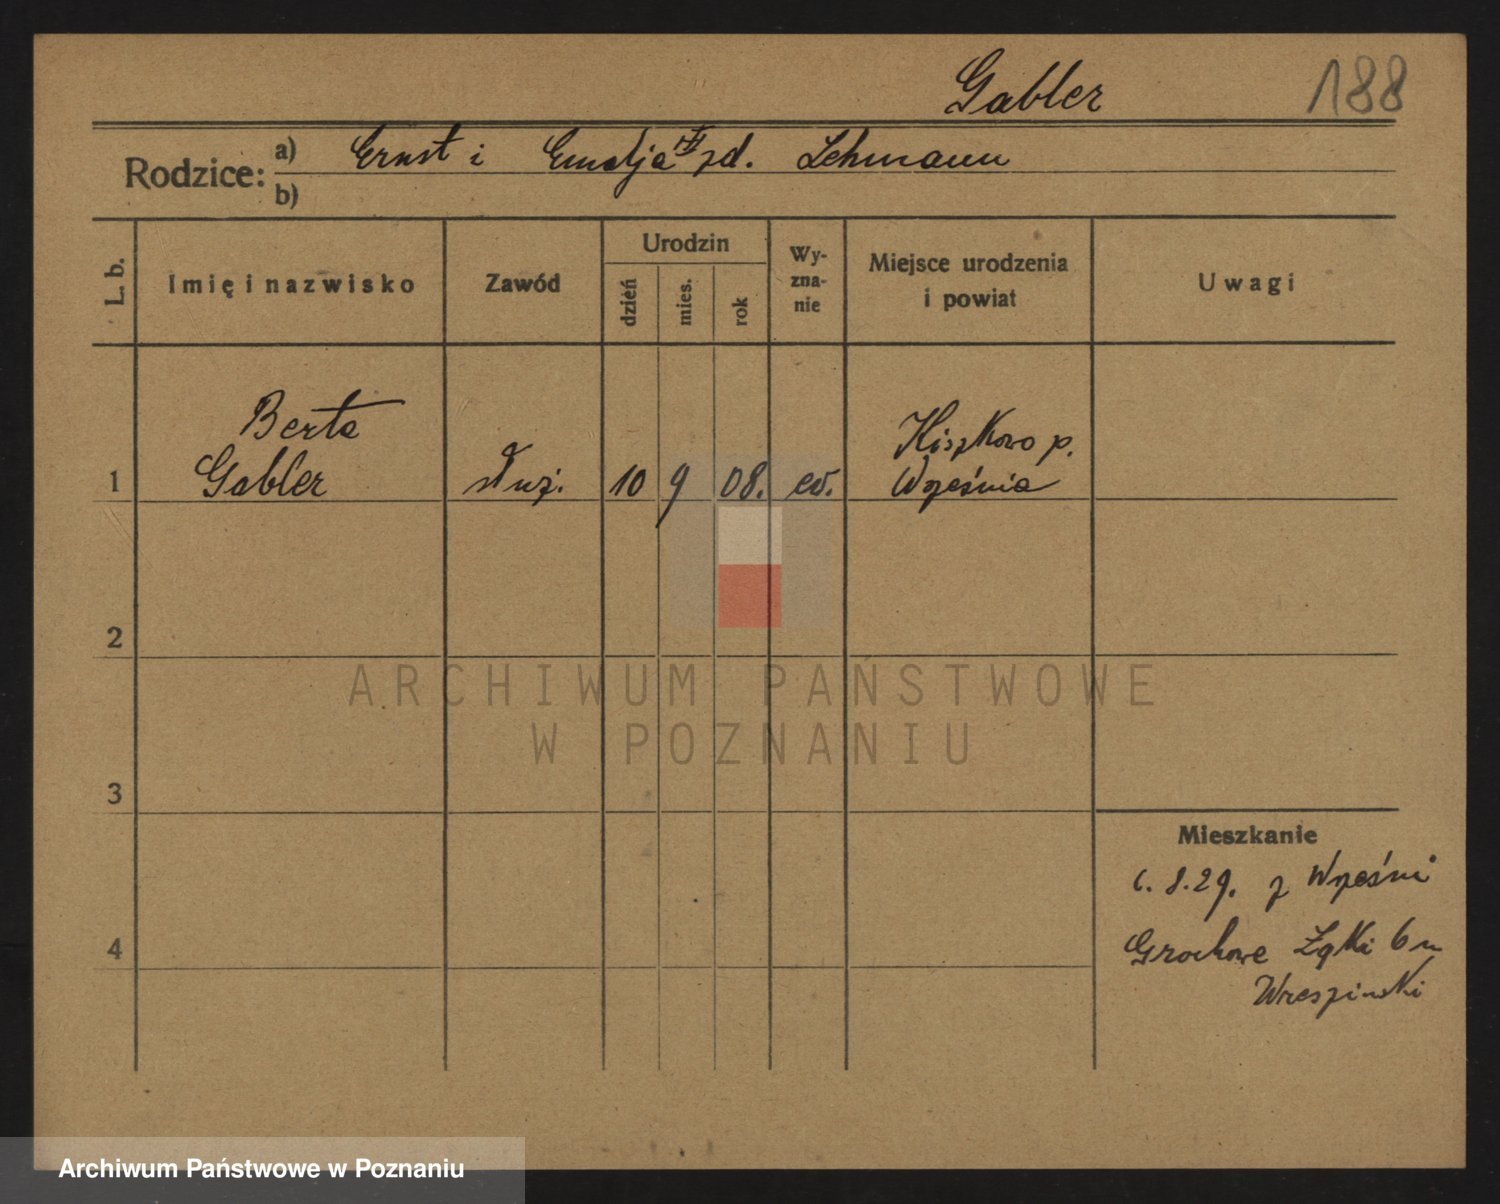 Gabler 188
Rodzice: a) Ernst i Emalja zd. Lehmann
b)
L. b.
Imię i nazwisko
Zawód
Urodzin
dzień
mies.
rok
Wy-
zna-
nie
Miejsce urodzenia
i powiat
Uwagi
Berta
1 Gabler służ. 10 9 08. ew.
Kiszkowo p.
Września
2
ARCHIWUM PAŃSTWOWE
W POZNANIU
3
Mieszkanie
8.29. z Wrześni
4
Grochowe Łąki 6 m
Wreszinski
Archiwum Państwowe w Poznaniu